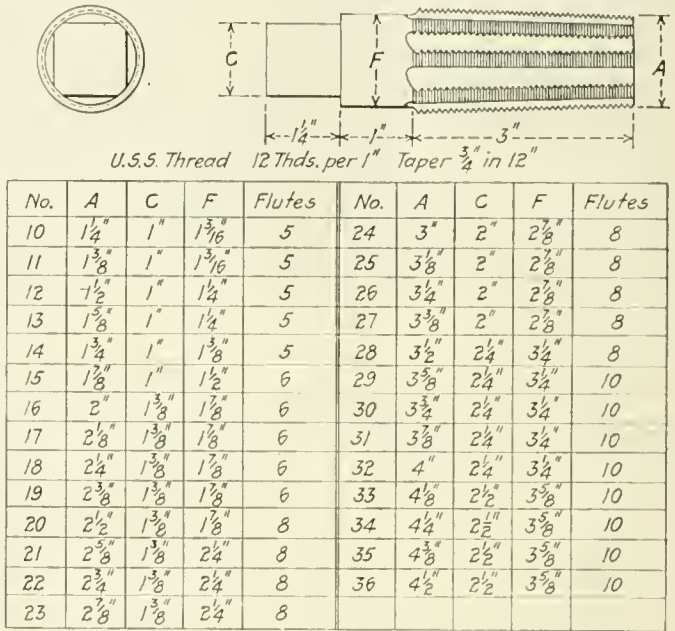 C F A
1 1/4" 1" 3"
U.S.S. Thread 12 Thds. per 1" Taper 3/4" in 12"
No. A C F Flutes No. A C F Flutes
10 1 1/4" 1" 1 3/16" 5 24 3" 2" 2 7/8" 8
11 1 3/8" 1" 1 3/16" 5 25 3 1/8" 2" 2 7/8" 8
12 1 1/2" 1" 1 1/4" 5 26 3 1/4" 2" 2 7/8" 8
13 1 5/8" 1" 1 1/4" 5 27 3 3/8" 2" 2 7/8" 8
14 1 3/4" 1" 1 3/8" 5 28 3 1/2" 2 1/4" 3 1/4" 8
15 1 7/8" 1" 1 1/2" 6 29 3 5/8" 2 1/4" 3 1/4" 10
16 2" 1 3/8" 1 7/8" 6 30 3 3/4" 2 1/4" 3 1/4" 10
17 2 1/8" 1 3/8" 1 7/8" 6 31 3 7/8" 2 1/4" 3 1/4" 10
18 2 1/4" 1 3/8" 1 7/8" 6 32 4" 2 1/4" 3 1/4" 10
19 2 3/8" 1 3/8" 1 7/8" 6 33 4 1/8" 2 1/2" 3 5/8" 10
20 2 1/2" 1 3/8" 1 7/8" 8 34 4 1/4" 2 1/2" 3 5/8" 10
21 2 5/8" 1 3/8" 2 1/4" 8 35 4 3/8" 2 1/2" 3 5/8" 10
22 2 3/4" 1 3/8" 2 1/4" 8 36 4 1/2" 2 1/2" 3 5/8" 10
23 2 7/8" 1 3/8" 2 1/4" 8